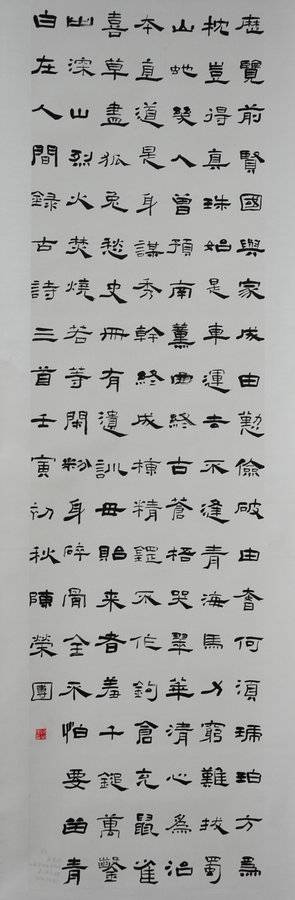 歷覽前賢國與家成由勤儉破由奢何須琥珀方為
枕豈得真珠始是車運去不逢青海馬力窮難拔蜀
山蛇幾人曾預南薰曲終古蒼梧哭翠華清心為治
本直道是身謀秀幹終成棟精鋼不作鉤倉充鼠雀
喜草盡狐兔愁史冊有遺訓毋貽来者羞千鎚萬鑿
出深山烈火焚燒若等閑粉身碎骨全不怕要留青
白在人間錄古詩三首壬寅初秋陳榮團